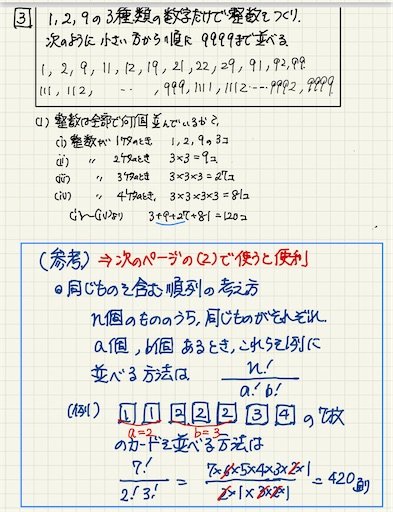 3 1, 2, 9の3種類の数字だけで整数をつくり、
次のように小さい方から順に9999まで並べる。
1, 2, 9, 11, 12, 19, 21, 22, 29, 91, 92, 99,
111, 112, ‥ ‥, 999, 1111, 1112 --- 9992, 9999
(1) 整数は全部で何個並んでいるか?
(i) 整数が1ケタのとき 1, 2, 9の3コ
(ii) 〃 2ケタのとき 3×3=9コ
(iii) 〃 3ケタのとき 3×3×3=27コ
(iv) 〃 4ケタのとき, 3×3×3×3=81コ
(i)~(iv)より 3+9+27+81=120コ
(参考) ⇒次のページの(2)で使うと便利
◎同じものを含む順列の考え方
n個のもののうち, 同じものがそれぞれ
a個, b個 あるとき, これらを1列に
並べる方法は n!/a!b!
(例) 1 1 2 2 2 3 4 の7枚
a=2 b=3
のカードを並べる方法は
7!/2!3! = 7×6×5×4×3×2×1/2×1×3×2×1 = 420通り